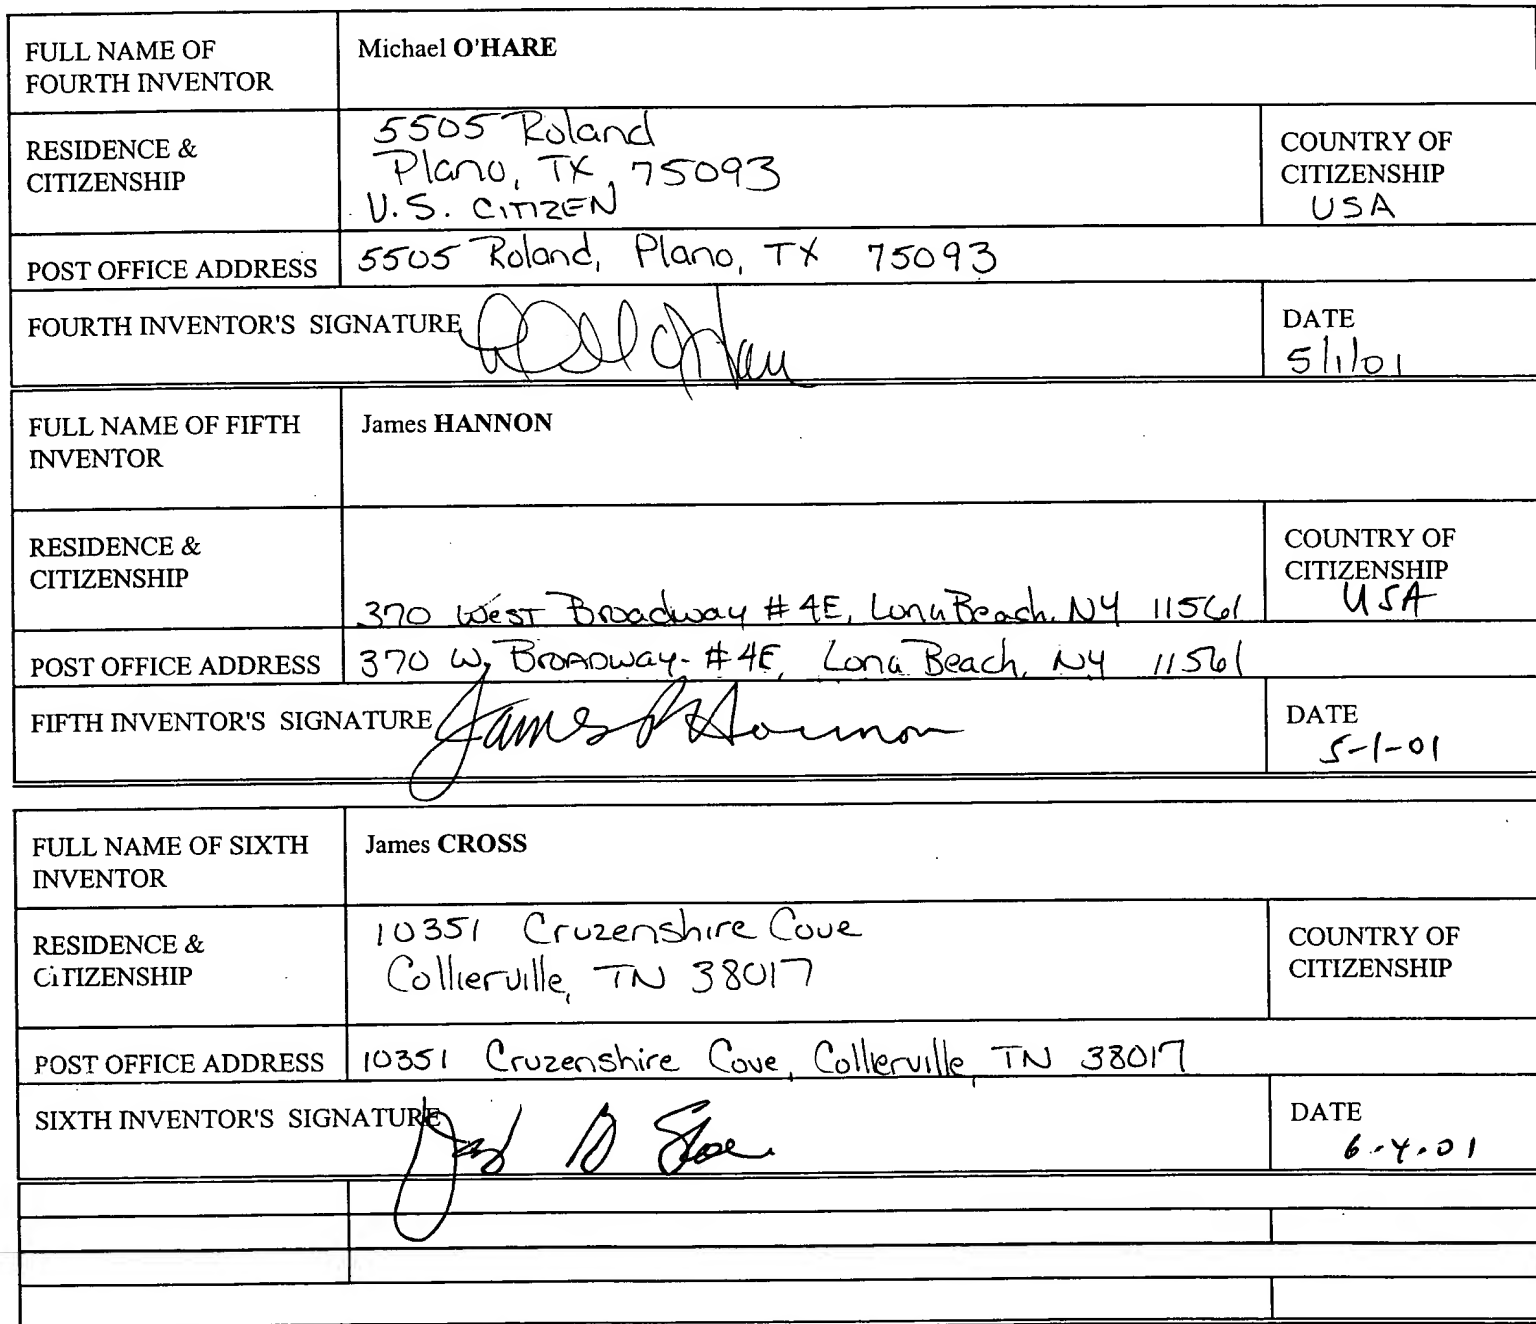 FULL NAME OF
FOURTH INVENTOR
Michael O'HARE
RESIDENCE &
CITIZENSHIP
5505 Roland
Plano, TX, 75093
U.S. CITIZEN
COUNTRY OF
CITIZENSHIP
USA
POST OFFICE ADDRESS
5505 Roland, Plano, TX 75093
FOURTH INVENTOR'S SIGNATURE
DATE
5/1/01
FULL NAME OF FIFTH
INVENTOR
James HANNON
RESIDENCE &
CITIZENSHIP
370 West Broadway #4E, Long Beach, NY 11561
COUNTRY OF
CITIZENSHIP
USA
POST OFFICE ADDRESS
370 W. Broadway - #4E, Long Beach, NY 11561
FIFTH INVENTOR'S SIGNATURE
James Hannon
DATE
5-1-01
FULL NAME OF SIXTH
INVENTOR
James CROSS
RESIDENCE &
CITIZENSHIP
10351 Cruzenshire Cove
Collierville, TN 38017
COUNTRY OF
CITIZENSHIP
POST OFFICE ADDRESS
10351 Cruzenshire Cove, Collierville, TN 38017
SIXTH INVENTOR'S SIGNATURE
DATE
6-4-01